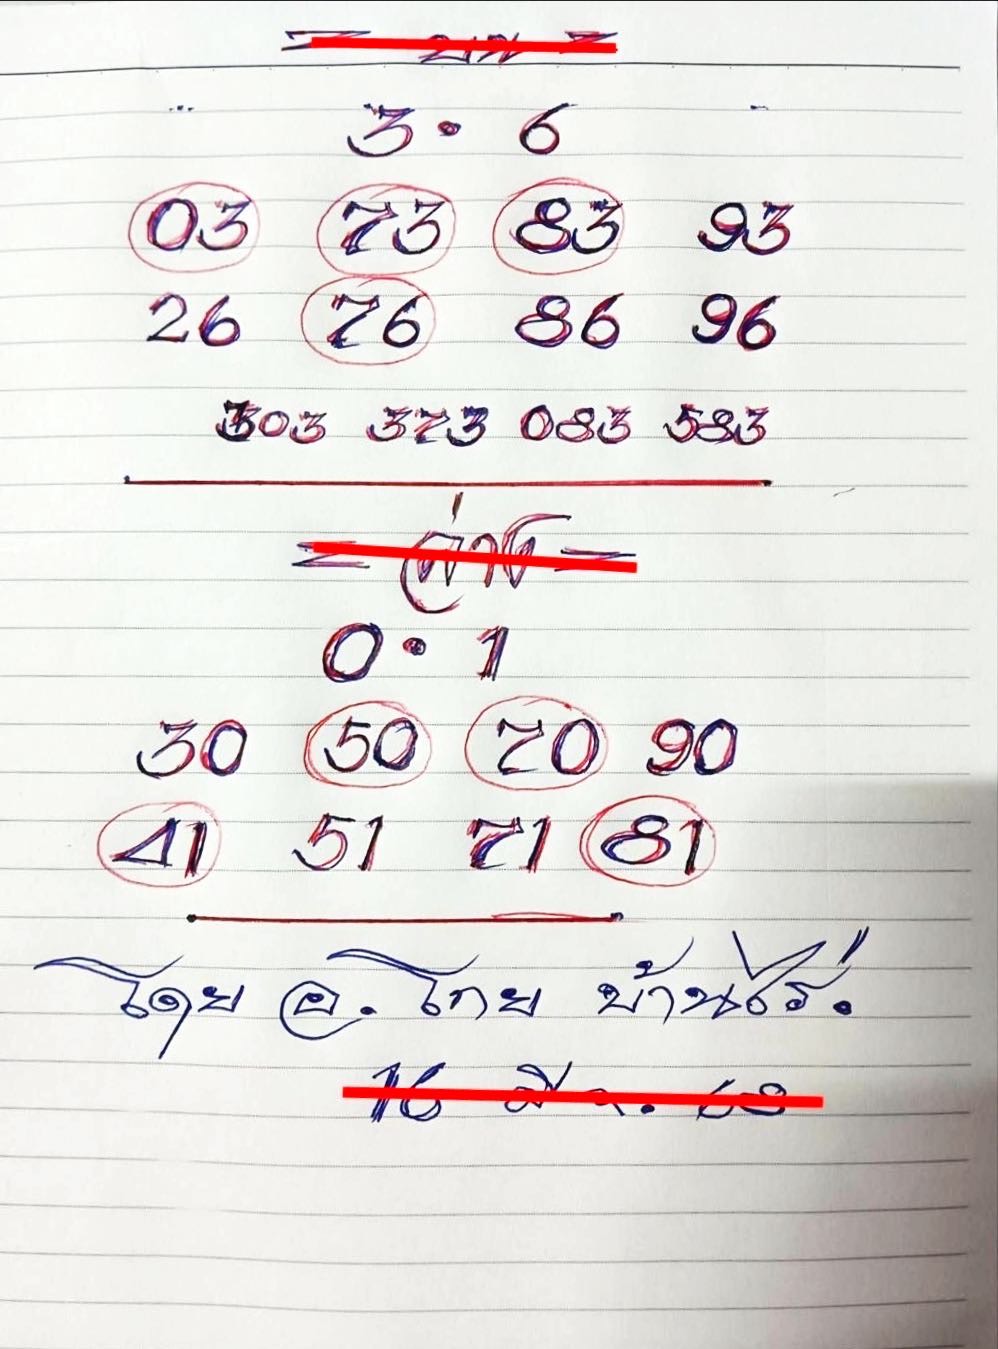 = บน =
3 • 6
03 73 83 93
26 76 86 96
303 373 083 583
= ล่าง =
0 • 1
30 50 70 90
41 51 71 81
โดย อ. โทย บ้านไร่.
16 มีค. 68